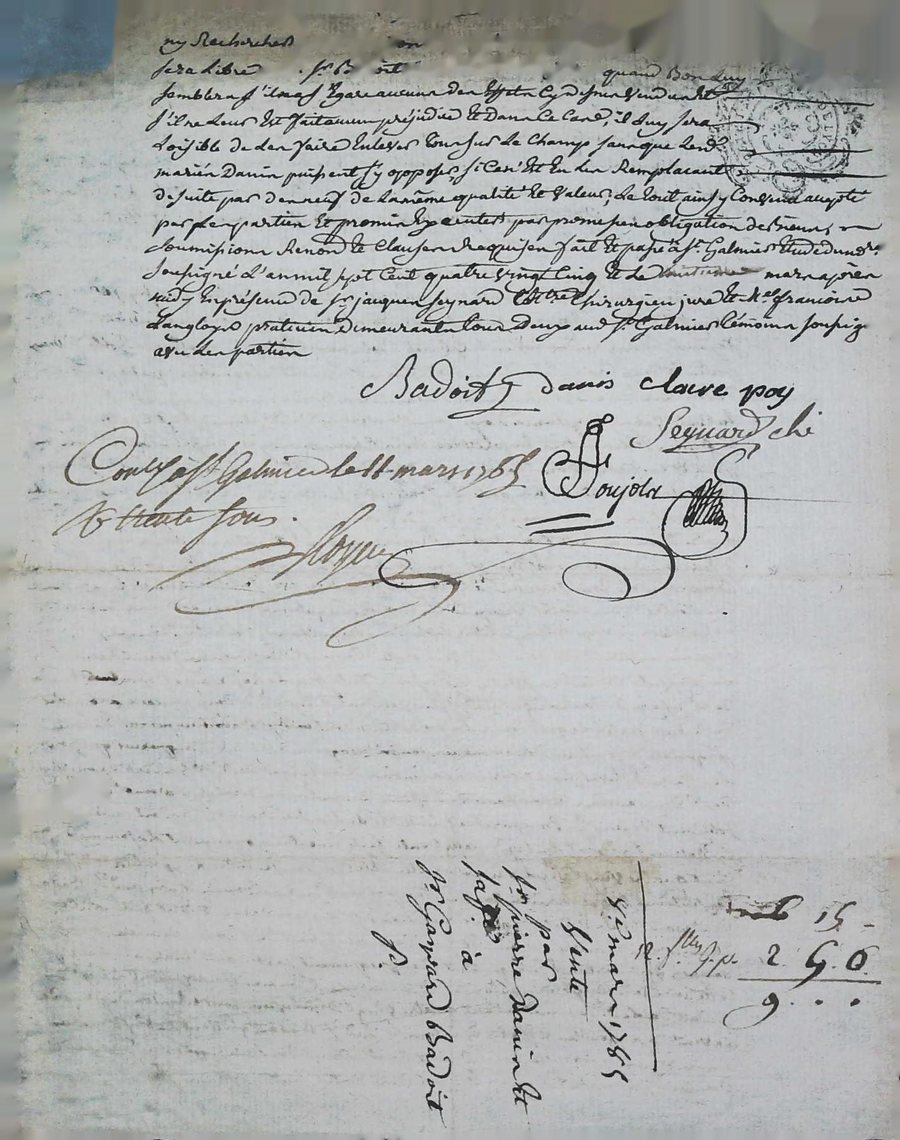 ny Recherches on
sera Libre Sr B oit quand Bon Luy
semblera s'il n'a Egaré aucuns des Effets Cy dessus vendus et
s'il ne Leur Est fait aucun prejudice Et dans Ce Cas, il Luy sera
Loisible de Les faire Enlever tous sur Le Champ sans que Lesd.
mariés Danis puissent s'y opposer, si Ce n'Est En Les Remplacant
de suite par des neufs de La même qualité Et valeur; Le tout ainsy Convenu accepté
par Les parties Et promis Executer par promesse obligation de biens,
soumissions Renond. Et Clauses Requises fait Et passé à St. Galmier Etude du nre.
soussigné L'an mil sept Cent quatre vingt Cinq Et Le mars apres
midy En présence de sr jacques seynard chirurgien juré Et Me. francois
Langloys praticien demeurants tous Deux aud. St. Galmier témoins soussig.
avec Les parties
Badoit danis claire poy
Seynard chi
Coulé à St Galmier le 11 mars 1785
R trente sous.
Poujols
8e. mars 1785
Vente
par
sr pierre Danis Et
sa fe
à
sr Gaspard Badoit
P.
6 15 -
12. s. p. lt 2 5. 0
9 . . .